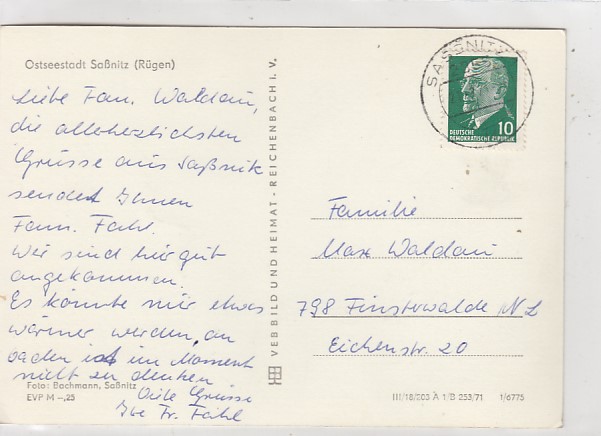 Ostseestadt Saßnitz (Rügen)
Liebe Fam. Waldau,
die allerherzlichsten
Grüsse aus Saßnitz
sendet Ihnen
Fam. Fahl.
Wir sind hier gut
angekommen.
Es könnte nur etwas
wärmer werden, an
baden ist im Moment
nicht zu denken
Viele Grüsse
Ihre Fr. Fahl
Foto: Bachmann, Saßnitz
EVP M –,25
VEB BILD UND HEIMAT · REICHENBACH I. V.
SASSNITZ
10
DEUTSCHE
DEMOKRATISCHE REPUBLIK
Familie
Max Waldau
798 Finsterwalde N L
Eichenstr. 20
III/18/203 A 1/B 253/71 1/6775